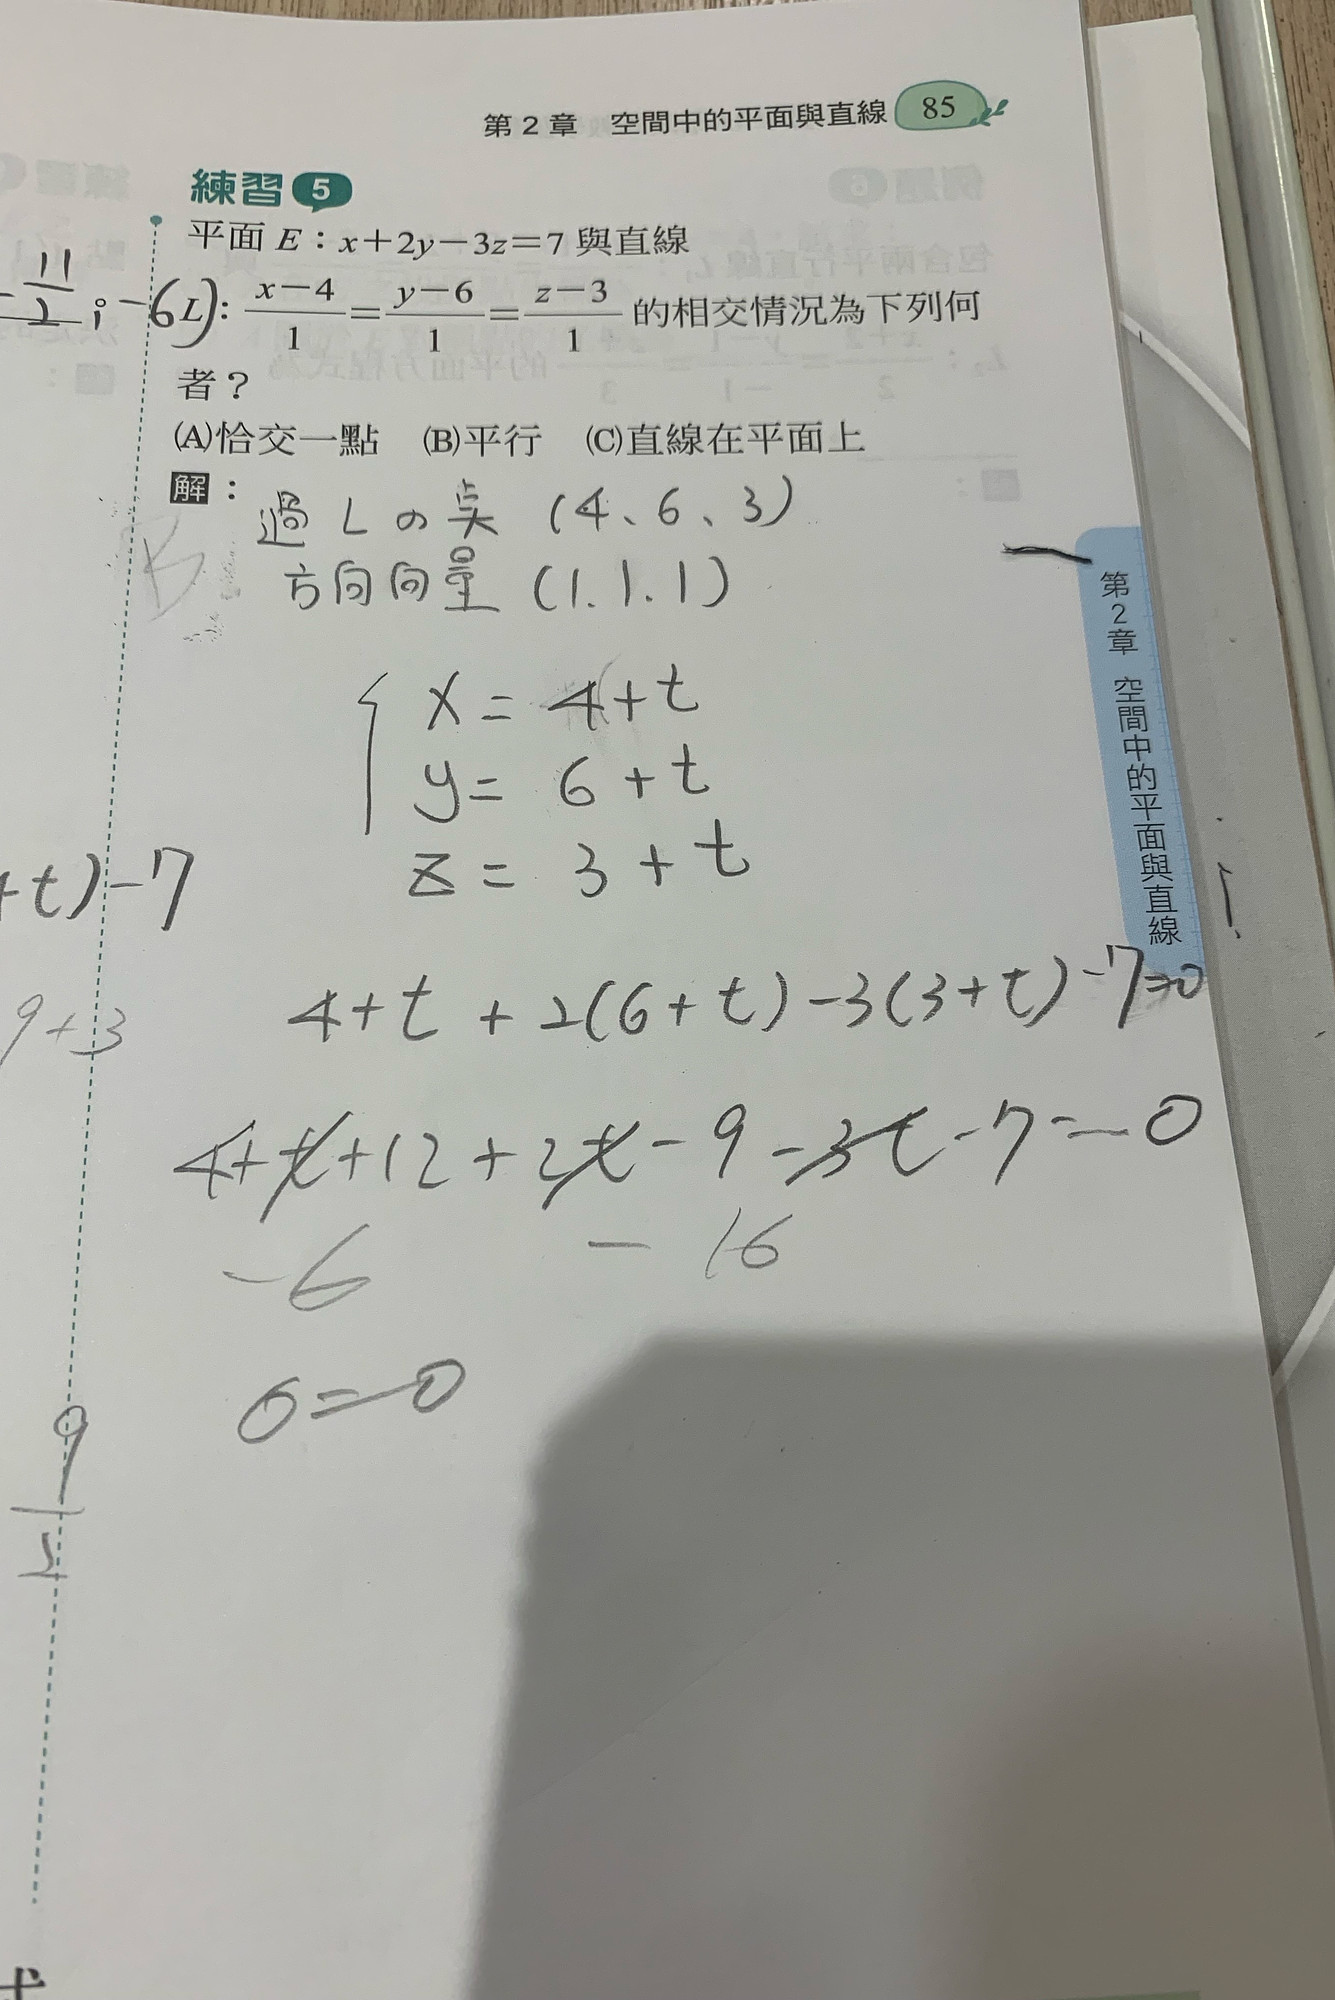 第2章 空間中的平面與直線 85
練習5
平面 E：x+2y−3z=7 與直線
L：(x−4)/1=(y−6)/1=(z−3)/1 的相交情況為下列何
者？
(A)恰交一點 (B)平行 (C)直線在平面上
解：
過 L の 点 (4、6、3)
方向向量 (1.1.1)
x = 4+t
y = 6+t
z = 3+t
4+t + 2(6+t) −3(3+t) −7=0
4+t+12+2t−9−3t−7=0
−6 − 16
0=0
11/2 ; −6)
+t)−7
9+3
9
B
第2章 空間中的平面與直線
式